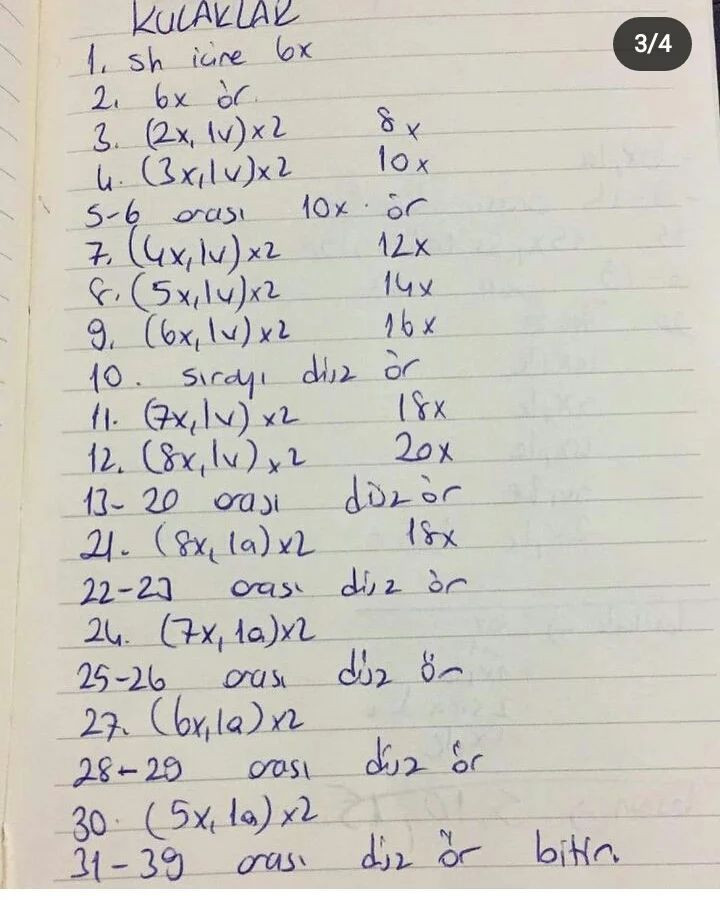 KULAKLAR
3/4
1. sh içine 6x
2. 6x ör.
3. (2x, 1v)x2 8x
4. (3x, 1v)x2 10x
5-6 orası 10x ör
7. (4x, 1v)x2 12x
8. (5x, 1v)x2 14x
9. (6x, 1v)x2 16x
10. sırayı düz ör
11. (7x, 1v)x2 18x
12. (8x, 1v)x2 20x
13-20 orası düz ör
21. (8x, 1a)x2 18x
22-23 orası düz ör
24. (7x, 1a)x2
25-26 orası düz ör
27. (6x, 1a)x2
28-29 orası düz ör
30. (5x, 1a)x2
31-39 orası düz ör bitir.